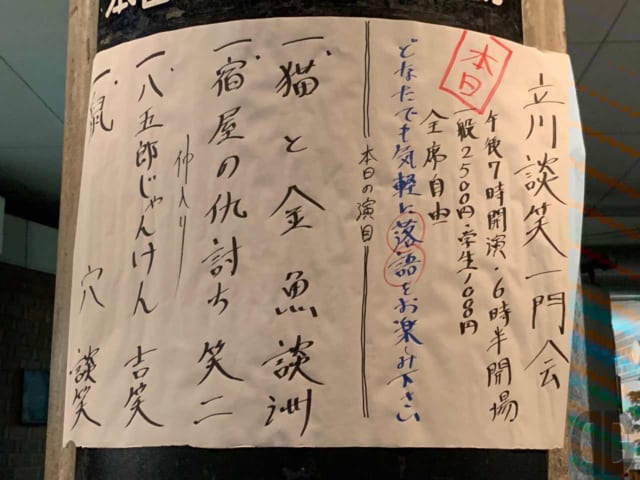 立川談笑一門会
本日
午後7時開演・6時半開場
一般2500円・学生108円
全席自由
どなたでも気軽に落語をお楽しみ下さい
本日の演目
一、猫と金魚 談洲
一、宿屋の仇討ち 笑二
仲入り
一、八五郎じゃんけん 吉笑
一、鼠穴 談笑